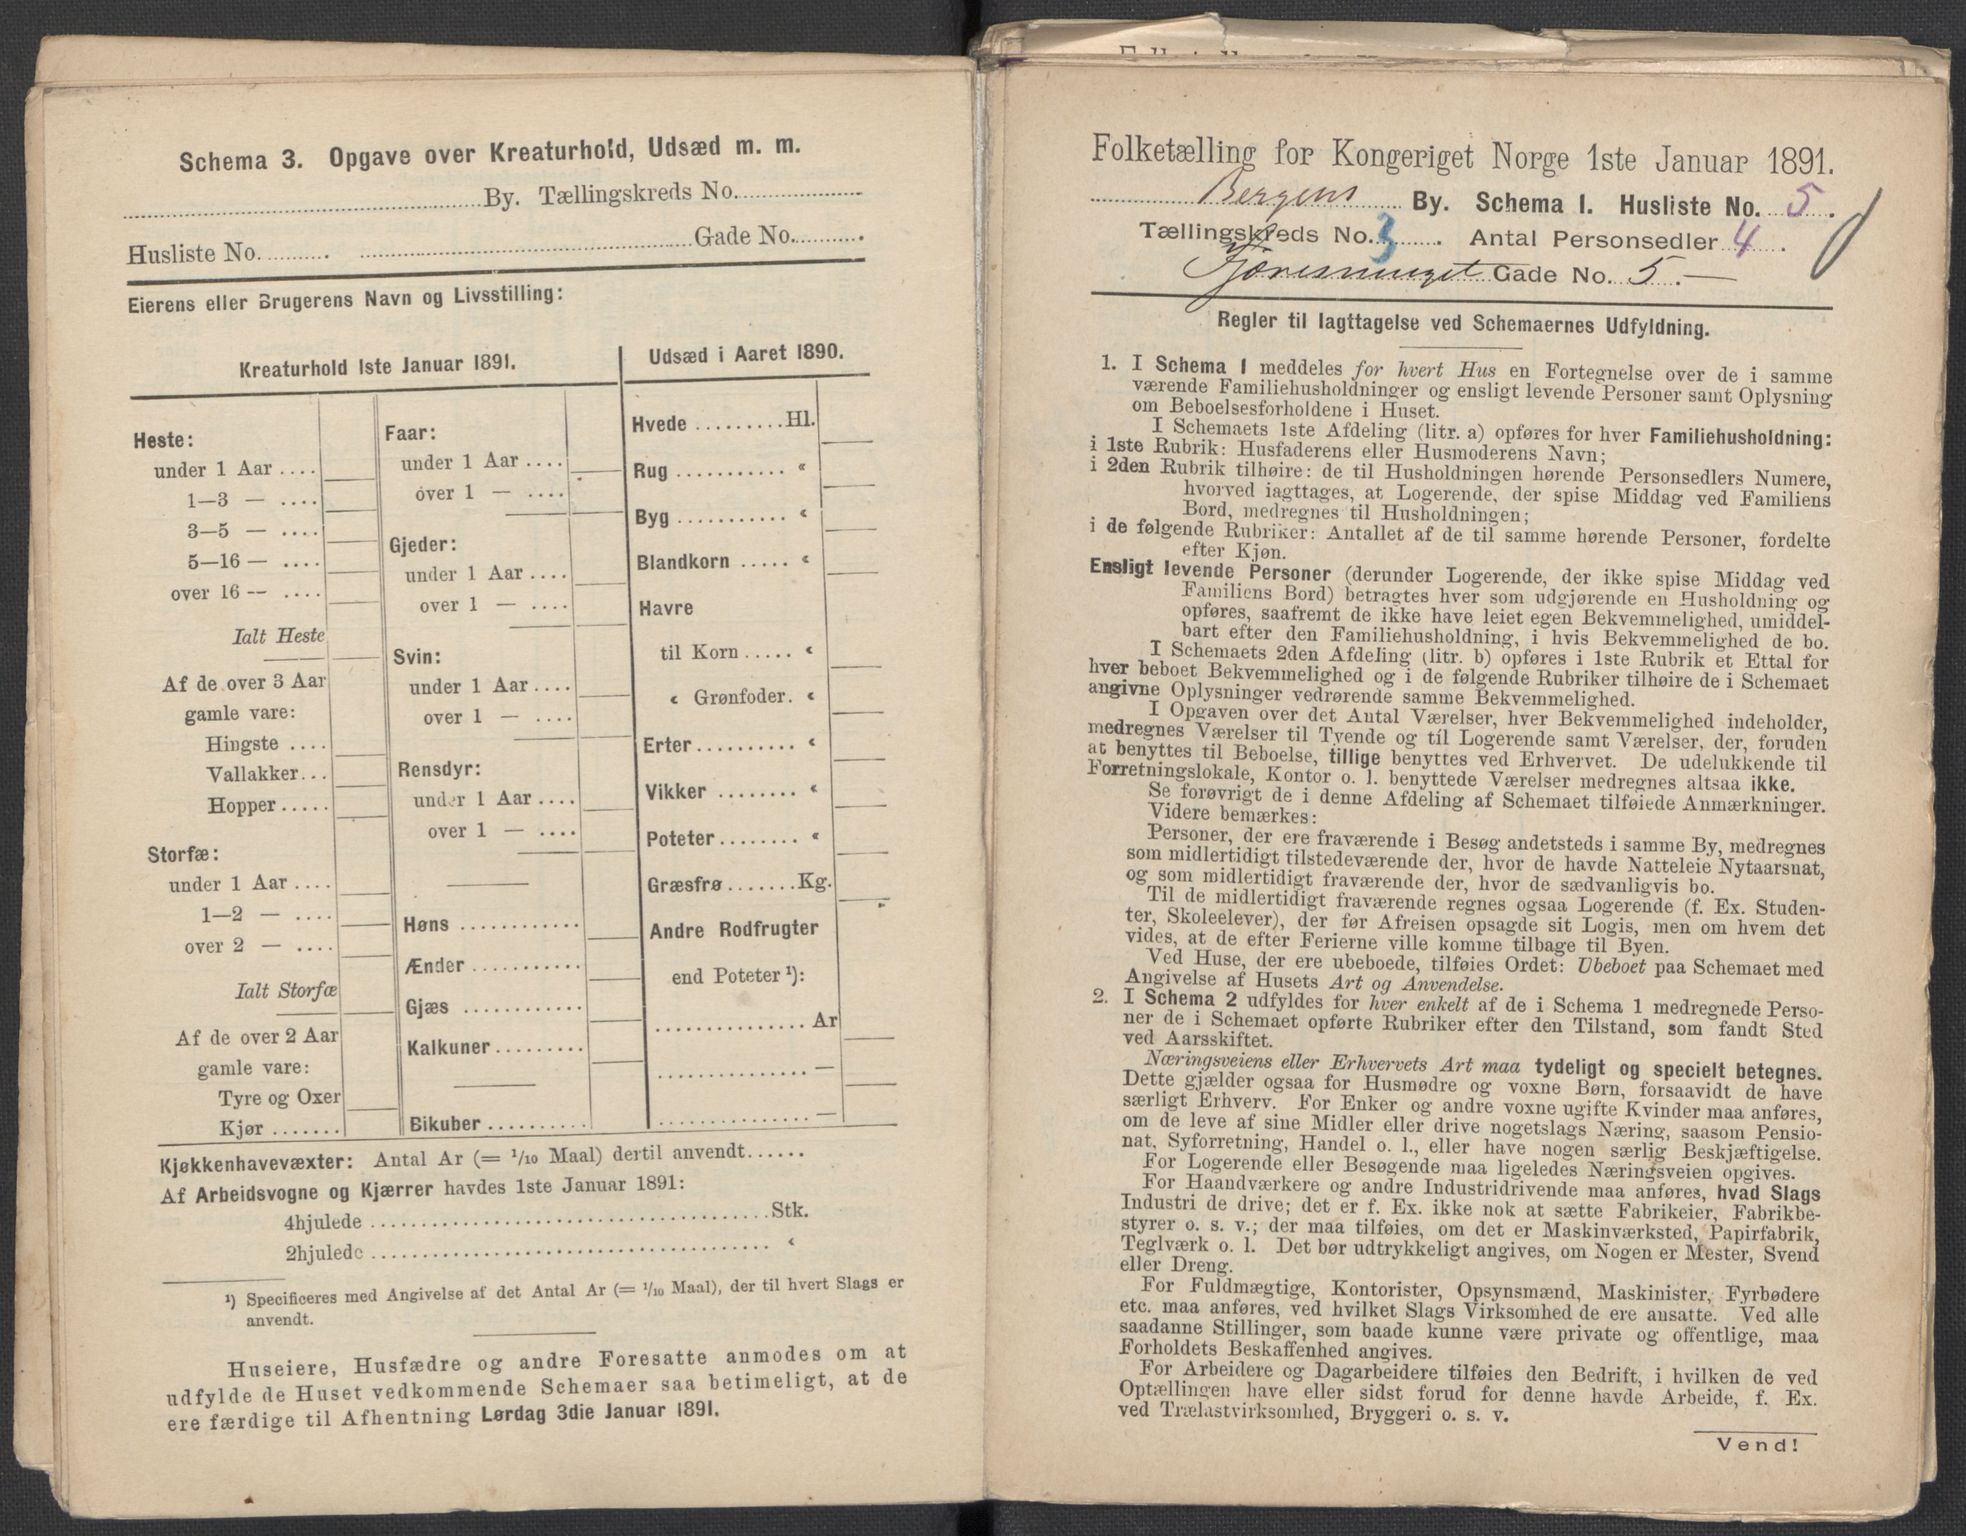 Schema 3. Opgave over Kreaturhold, Udsæd m. m.
By. Tællingskreds No.
Husliste No. Gade No.
Eierens eller Brugerens Navn og Livsstilling:
Kreaturhold 1ste Januar 1891.
Heste:
under 1 Aar ....
1—3 — ....
3—5 — ....
5—16 — ....
over 16 — ....
Ialt Heste
Af de over 3 Aar
gamle vare:
Hingste ....
Vallakker...
Hopper.....
Storfæ:
under 1 Aar ....
1—2 — ....
over 2 — ....
Ialt Storfæ
Af de over 2 Aar
gamle vare:
Tyre og Oxer
Kjør .......
Faar:
under 1 Aar ....
over 1 — ....
Gjeder:
under 1 Aar ....
over 1 — ....
Svin:
under 1 Aar ....
over 1 — ....
Rensdyr:
under 1 Aar ....
over 1 — ....
Høns ............
Ænder ...........
Gjæs ............
Kalkuner.........
Bikuber ..........
Udsæd i Aaret 1890.
Hvede .........Hl.
Rug ........... «
Byg ........... «
Blandkorn ..... «
Havre
til Korn ..... «
« Grønfoder. «
Erter.......... «
Vikker ........ «
Poteter........ «
Græsfrø.......Kg.
Andre Rodfrugter
end Poteter ¹):
............... Ar
............... —
............... —
Kjøkkenhavevæxter: Antal Ar (= 1/10 Maal) dertil anvendt......
Af Arbeidsvogne og Kjærrer havdes 1ste Januar 1891:
4hjulede ......................................Stk.
2hjulede ...................................... «
¹) Specificeres med Angivelse af det Antal Ar (= 1/10 Maal), der til hvert Slags er
anvendt.
Huseiere, Husfædre og andre Foresatte anmodes om at
udfylde de Huset vedkommende Schemaer saa betimeligt, at de
ere færdige til Afhentning Lørdag 3die Januar 1891.
Folketælling for Kongeriget Norge 1ste Januar 1891.
Bergens By. Schema I. Husliste No. 5.
Tællingskreds No. 3. Antal Personsedler 4.
Gade No. 5.—
Regler til Iagttagelse ved Schemaernes Udfyldning.
1. I Schema 1 meddeles for hvert Hus en Fortegnelse over de i samme
værende Familiehusholdninger og ensligt levende Personer samt Oplysning
om Beboelsesforholdene i Huset.
I Schemaets 1ste Afdeling (litr. a) opføres for hver Familiehusholdning:
i 1ste Rubrik: Husfaderens eller Husmoderens Navn;
i 2den Rubrik tilhøire: de til Husholdningen hørende Personsedlers Numere,
hvorved iagttages, at Logerende, der spise Middag ved Familiens
Bord, medregnes til Husholdningen;
i de følgende Rubriker: Antallet af de til samme hørende Personer, fordelte
efter Kjøn.
Ensligt levende Personer (derunder Logerende, der ikke spise Middag ved
Familiens Bord) betragtes hver som udgjørende en Husholdning og
opføres, saafremt de ikke have leiet egen Bekvemmelighed, umiddel-
bart efter den Familiehusholdning, i hvis Bekvemmelighed de bo.
I Schemaets 2den Afdeling (litr. b) opføres i 1ste Rubrik et Ettal for
hver beboet Bekvemmelighed og i de følgende Rubriker tilhøire de i Schemaet
angivne Oplysninger vedrørende samme Bekvemmelighed.
I Opgaven over det Antal Værelser, hver Bekvemmelighed indeholder,
medregnes Værelser til Tyende og til Logerende samt Værelser, der, foruden
at benyttes til Beboelse, tillige benyttes ved Erhvervet. De udelukkende til
Forretningslokale, Kontor o. l. benyttede Værelser medregnes altsaa ikke.
Se forøvrigt de i denne Afdeling af Schemaet tilføiede Anmærkninger.
Videre bemærkes:
Personer, der ere fraværende i Besøg andetsteds i samme By, medregnes
som midlertidigt tilstedeværende der, hvor de havde Natteleie Nytaarsnat,
og som midlertidigt fraværende der, hvor de sædvanligvis bo.
Til de midlertidigt fraværende regnes ogsaa Logerende (f. Ex. Studen-
ter, Skoleelever), der før Afreisen opsagde sit Logis, men om hvem det
vides, at de efter Ferierne ville komme tilbage til Byen.
Ved Huse, der ere ubeboede, tilføies Ordet: Ubeboet paa Schemaet med
Angivelse af Husets Art og Anvendelse.
2. I Schema 2 udfyldes for hver enkelt af de i Schema 1 medregnede Perso-
ner de i Schemaet opførte Rubriker efter den Tilstand, som fandt Sted
ved Aarsskiftet.
Næringsveiens eller Erhvervets Art maa tydeligt og specielt betegnes.
Dette gjælder ogsaa for Husmødre og voxne Børn, forsaavidt de have
særligt Erhverv. For Enker og andre voxne ugifte Kvinder maa anføres,
om de leve af sine Midler eller drive nogetslags Næring, saasom Pensio-
nat, Syforretning, Handel o. l., eller have nogen særlig Beskjæftigelse.
For Logerende eller Besøgende maa ligeledes Næringsveien opgives.
For Haandværkere og andre Industridrivende maa anføres, hvad Slags
Industri de drive; det er f. Ex. ikke nok at sætte Fabrikeier, Fabrikbe-
styrer o. s. v.; der maa tilføies, om det er Maskinværksted, Papirfabrik,
Teglværk o. l. Det bør udtrykkeligt angives, om Nogen er Mester, Svend
eller Dreng.
For Fuldmægtige, Kontorister, Opsynsmænd, Maskinister, Fyrbødere
etc. maa anføres, ved hvilket Slags Virksomhed de ere ansatte. Ved alle
saadanne Stillinger, som baade kunne være private og offentlige, maa
Forholdets Beskaffenhed angives.
For Arbeidere og Dagarbeidere tilføies den Bedrift, i hvilken de ved
Optællingen have eller sidst forud for denne havde Arbeide, f. Ex.
ved Trælastvirksomhed, Bryggeri o. s. v.
Vend!